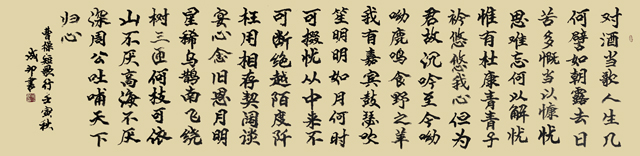 对酒当歌人生几
何譬如朝露去日
苦多慨当以慷忧
思难忘何以解忧
惟有杜康青青子
衿悠悠我心但为
君故沉吟至今呦
呦鹿鸣食野之苹
我有嘉宾鼓瑟吹
笙明明如月何时
可掇忧从中来不
可断绝越陌度阡
枉用相存契阔谈
宴心念旧恩月明
星稀乌鹊南飞绕
树三匝何枝可依
山不厌高海不厌
深周公吐哺天下
归心
曹操短歌行壬寅秋
书